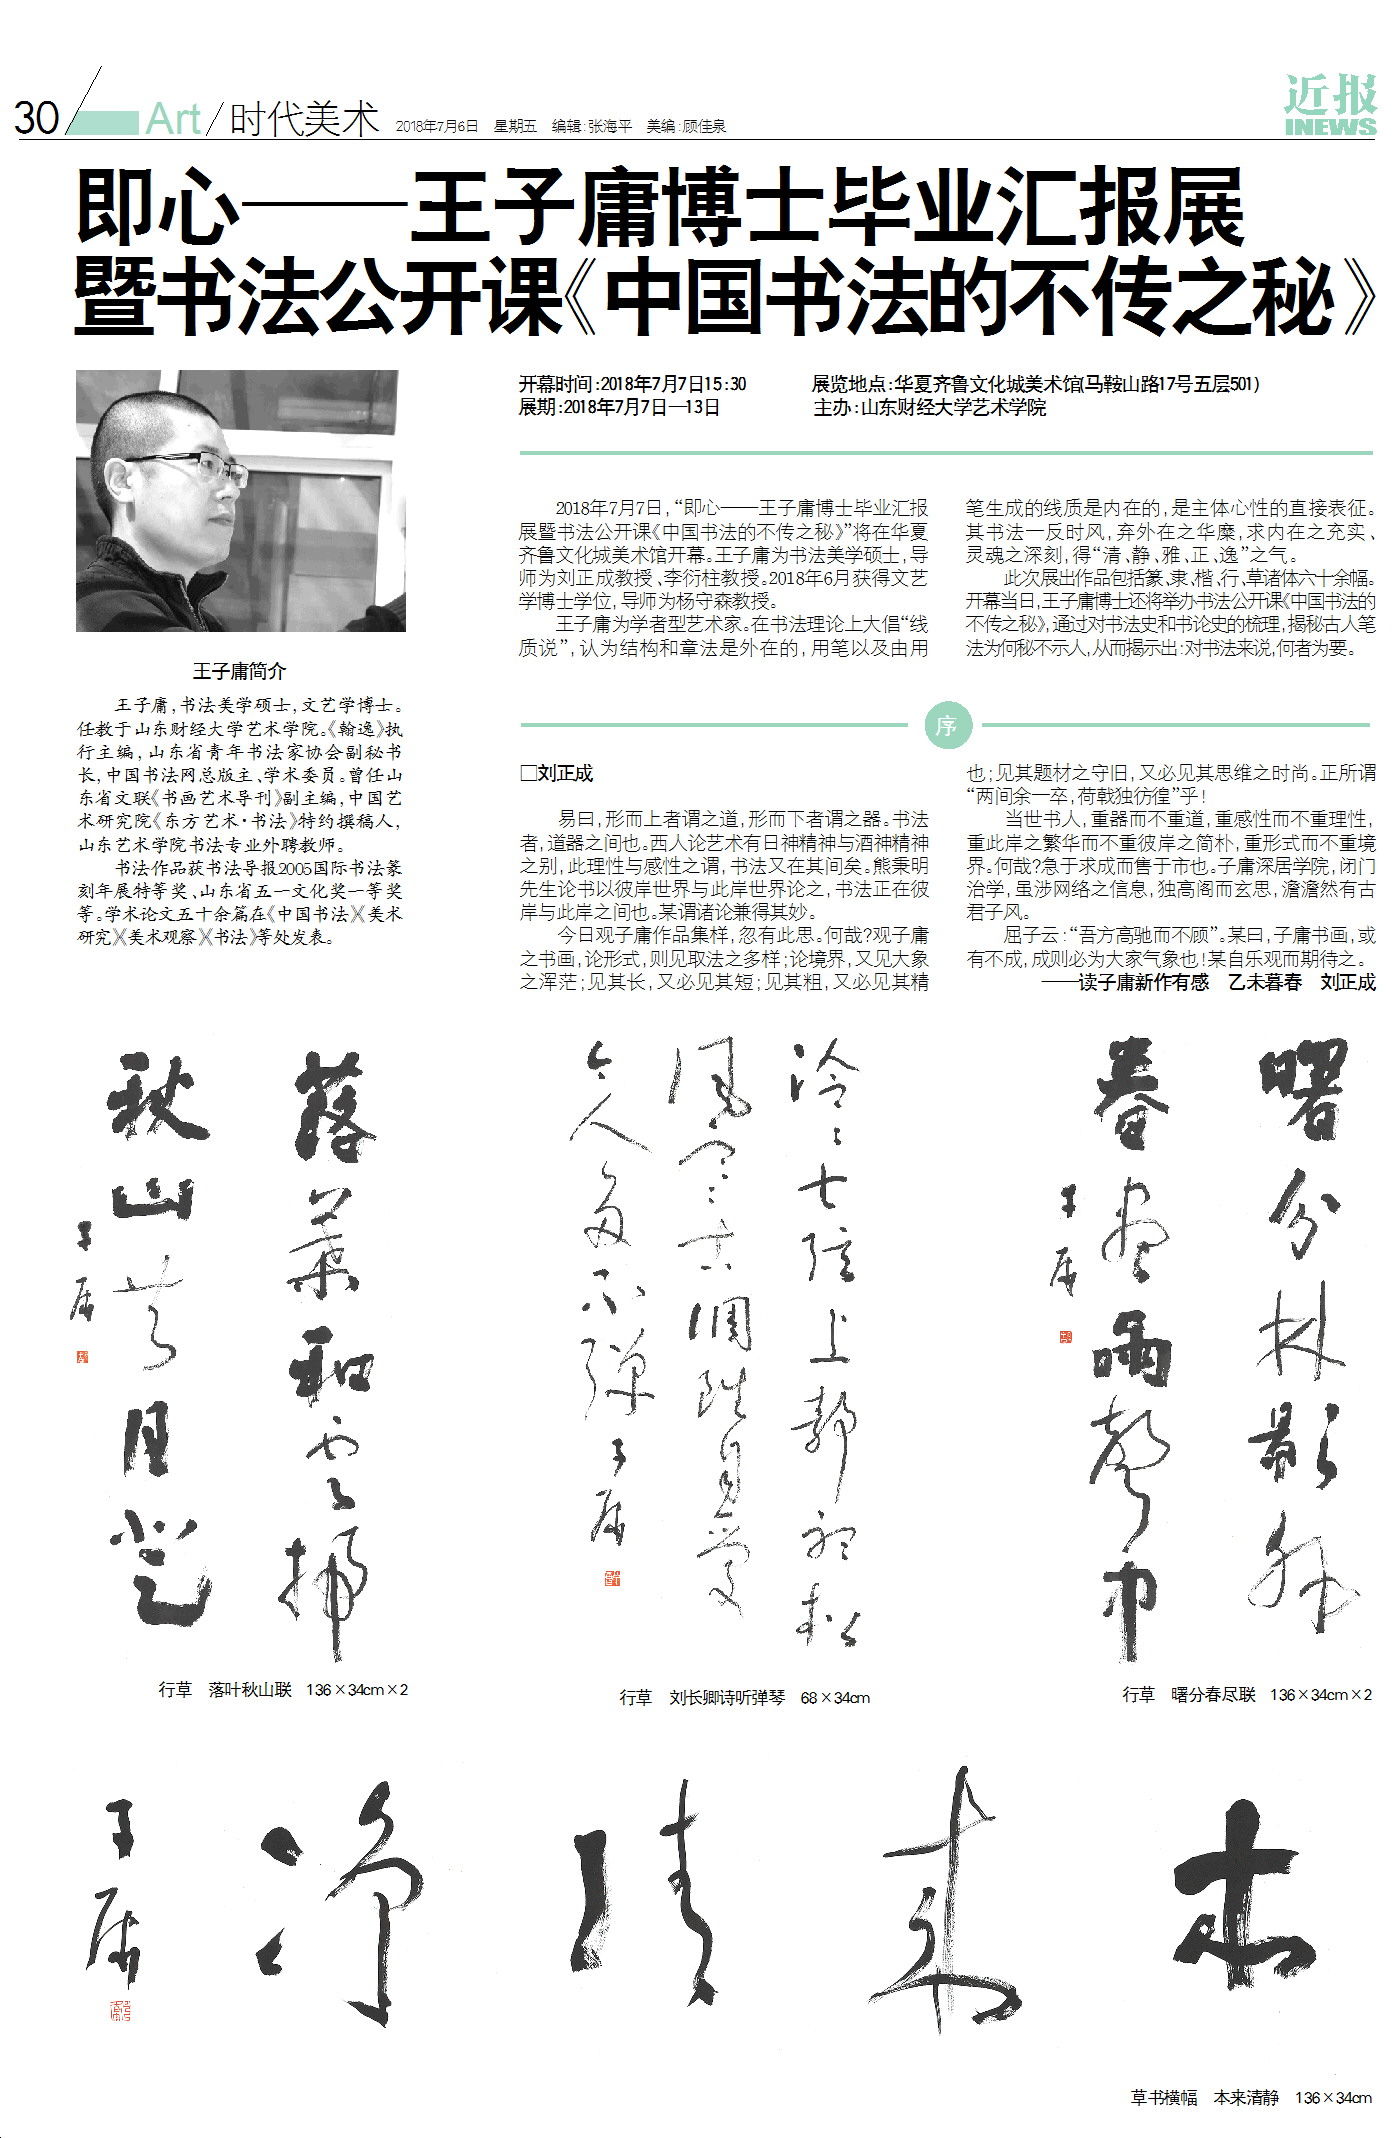 30 Art/时代美术 2018年7月6日 星期五 编辑:张海平 美编:顾佳泉
近报
INEWS
即心——王子庸博士毕业汇报展
暨书法公开课《中国书法的不传之秘》
开幕时间:2018年7月7日15:30 展览地点:华夏齐鲁文化城美术馆(马鞍山路17号五层501)
展期:2018年7月7日—13日 主办:山东财经大学艺术学院
王子庸简介
王子庸,书法美学硕士,文艺学博士。
任教于山东财经大学艺术学院。《翰逸》执
行主编,山东省青年书法家协会副秘书
长,中国书法网总版主、学术委员。曾任山
东省文联《书画艺术导刊》副主编,中国艺
术研究院《东方艺术·书法》特约撰稿人,
山东艺术学院书法专业外聘教师。
书法作品获书法导报2005国际书法篆
刻年展特等奖、山东省五一文化奖一等奖
等。学术论文五十余篇在《中国书法》《美术
研究》《美术观察》《书法》等处发表。
2018年7月7日,“即心——王子庸博士毕业汇报
展暨书法公开课《中国书法的不传之秘》”将在华夏
齐鲁文化城美术馆开幕。王子庸为书法美学硕士,导
师为刘正成教授、李衍柱教授。2018年6月获得文艺
学博士学位,导师为杨守森教授。
王子庸为学者型艺术家。在书法理论上大倡“线
质说”,认为结构和章法是外在的,用笔以及由用
笔生成的线质是内在的,是主体心性的直接表征。
其书法一反时风,弃外在之华糜,求内在之充实、
灵魂之深刻,得“清、静、雅、正、逸”之气。
此次展出作品包括篆、隶、楷、行、草诸体六十余幅。
开幕当日,王子庸博士还将举办书法公开课《中国书法的
不传之秘》,通过对书法史和书论史的梳理,揭秘古人笔
法为何秘不示人,从而揭示出:对书法来说,何者为要。
序
□刘正成
易曰,形而上者谓之道,形而下者谓之器。书法
者,道器之间也。西人论艺术有日神精神与酒神精神
之别,此理性与感性之谓,书法又在其间矣。熊秉明
先生论书以彼岸世界与此岸世界论之,书法正在彼
岸与此岸之间也。某谓诸论兼得其妙。
今日观子庸作品集样,忽有此思。何哉?观子庸
之书画,论形式,则见取法之多样;论境界,又见大象
之浑茫;见其长,又必见其短;见其粗,又必见其精
也;见其题材之守旧,又必见其思维之时尚。正所谓
“两间余一卒,荷戟独彷徨”乎!
当世书人,重器而不重道,重感性而不重理性,
重此岸之繁华而不重彼岸之简朴,重形式而不重境
界。何哉?急于求成而售于市也。子庸深居学院,闭门
治学,虽涉网络之信息,独高阁而玄思,澹澹然有古
君子风。
屈子云:“吾方高驰而不顾”。某曰,子庸书画,或
有不成,成则必为大家气象也!某自乐观而期待之。
——读子庸新作有感 乙未暮春 刘正成
落葉和云掃
秋山共月登
子庸
行草 落叶秋山联 136×34cm×2
泠〻七弦上静听松
风寒古调虽自爱
今人多不弹
子庸
行草 刘长卿诗听弹琴 68×34cm
曙分林影外
春尽雨声中
子庸
行草 曙分春尽联 136×34cm×2
本来清净
子庸
草书横幅 本来清静 136×34cm